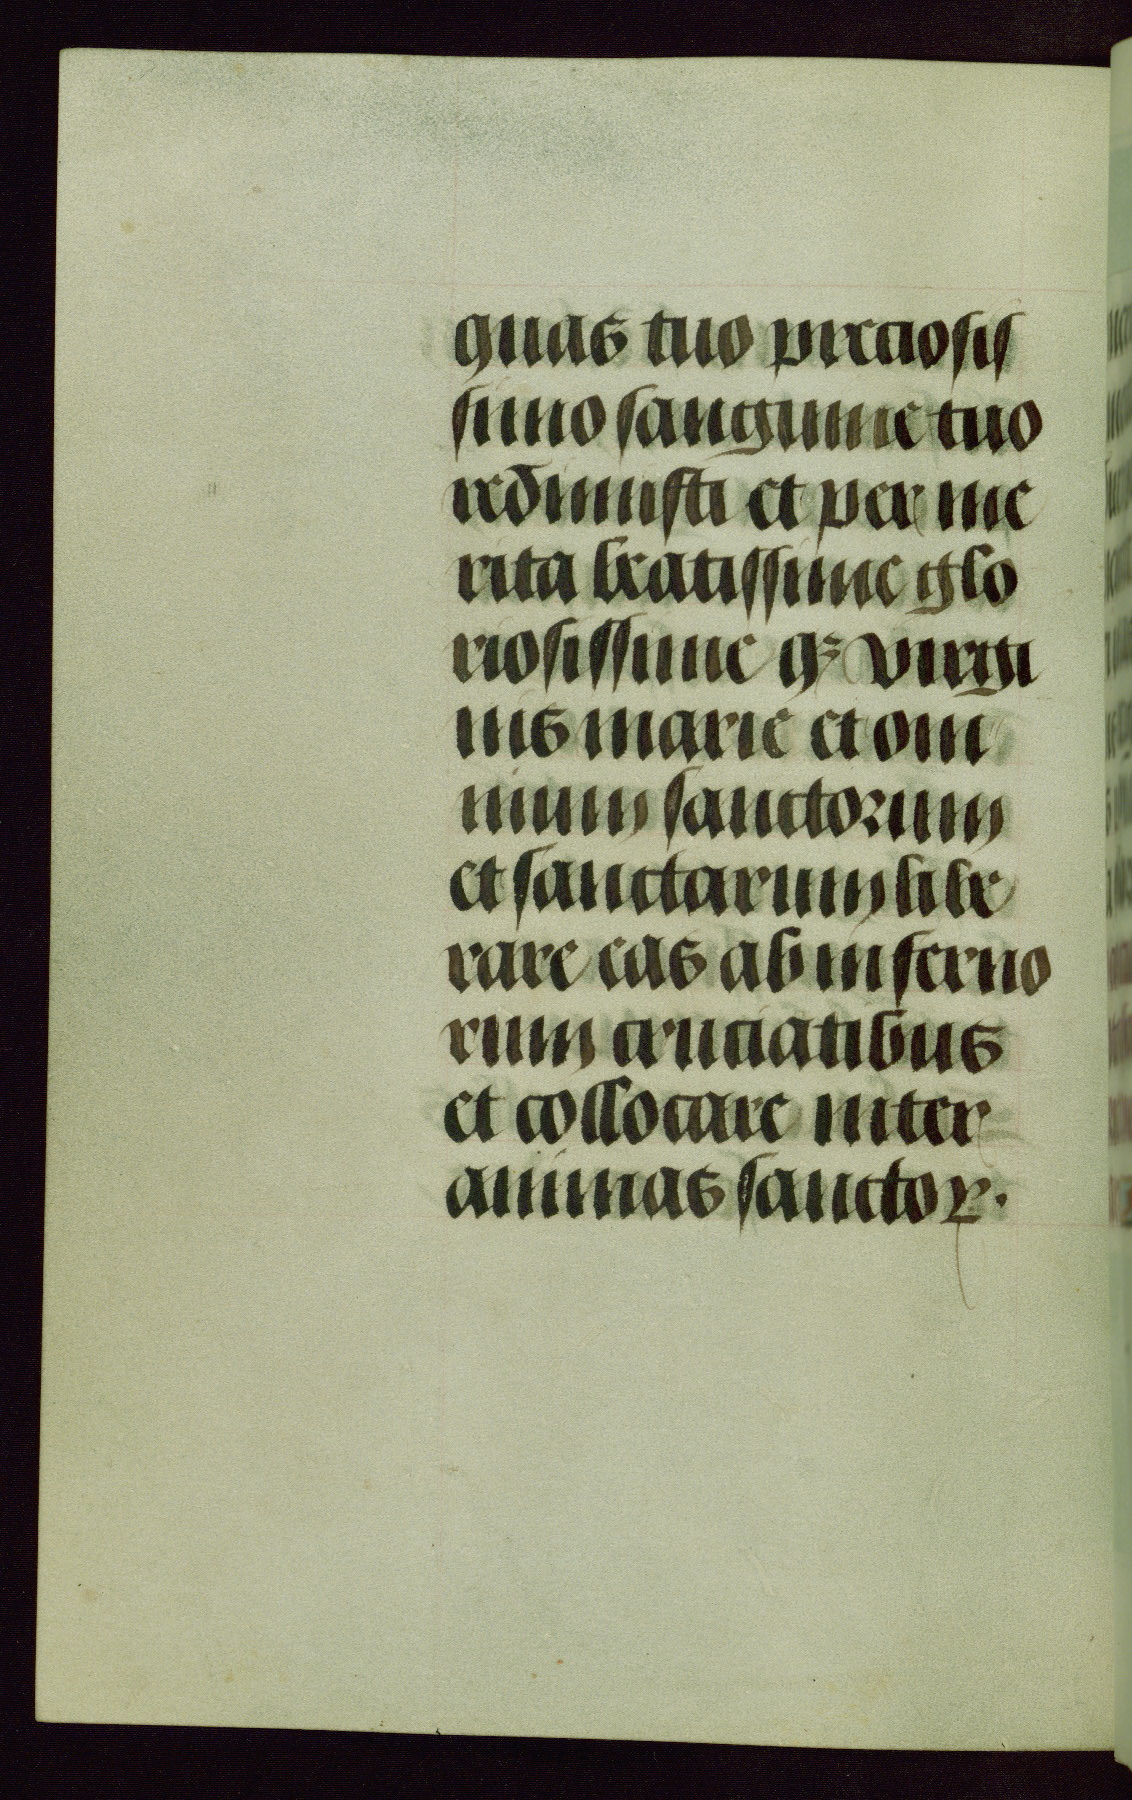 quas tuo preciosis
simo sanguine tuo
redimisti et per me
rita beatissime glo
riosissime qꝫ virgi
nis marie et om
nium sanctorum
et sanctarum libe
rare eas ab inferno
rum cruciatibus
et collocare inter
animas sanctoꝝ.